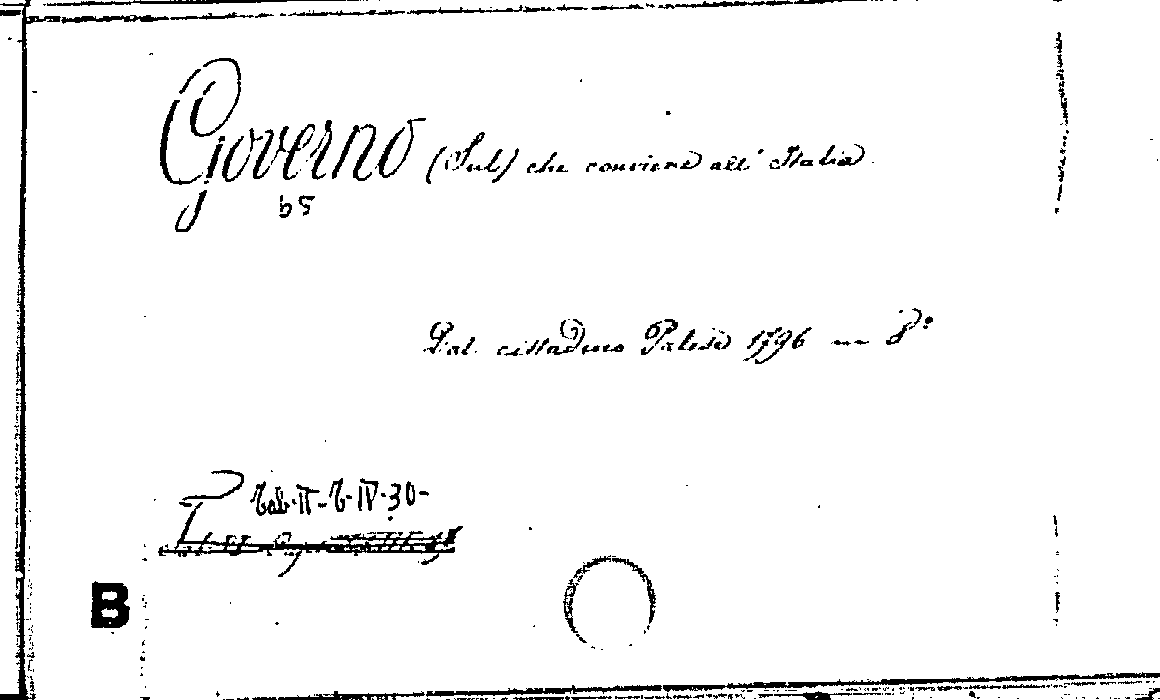 Governo (Sul) che conviene all' Italia
65
Dal cittadino Palese 1796 in 8°
Tab. II - I - IV. 30 -
B